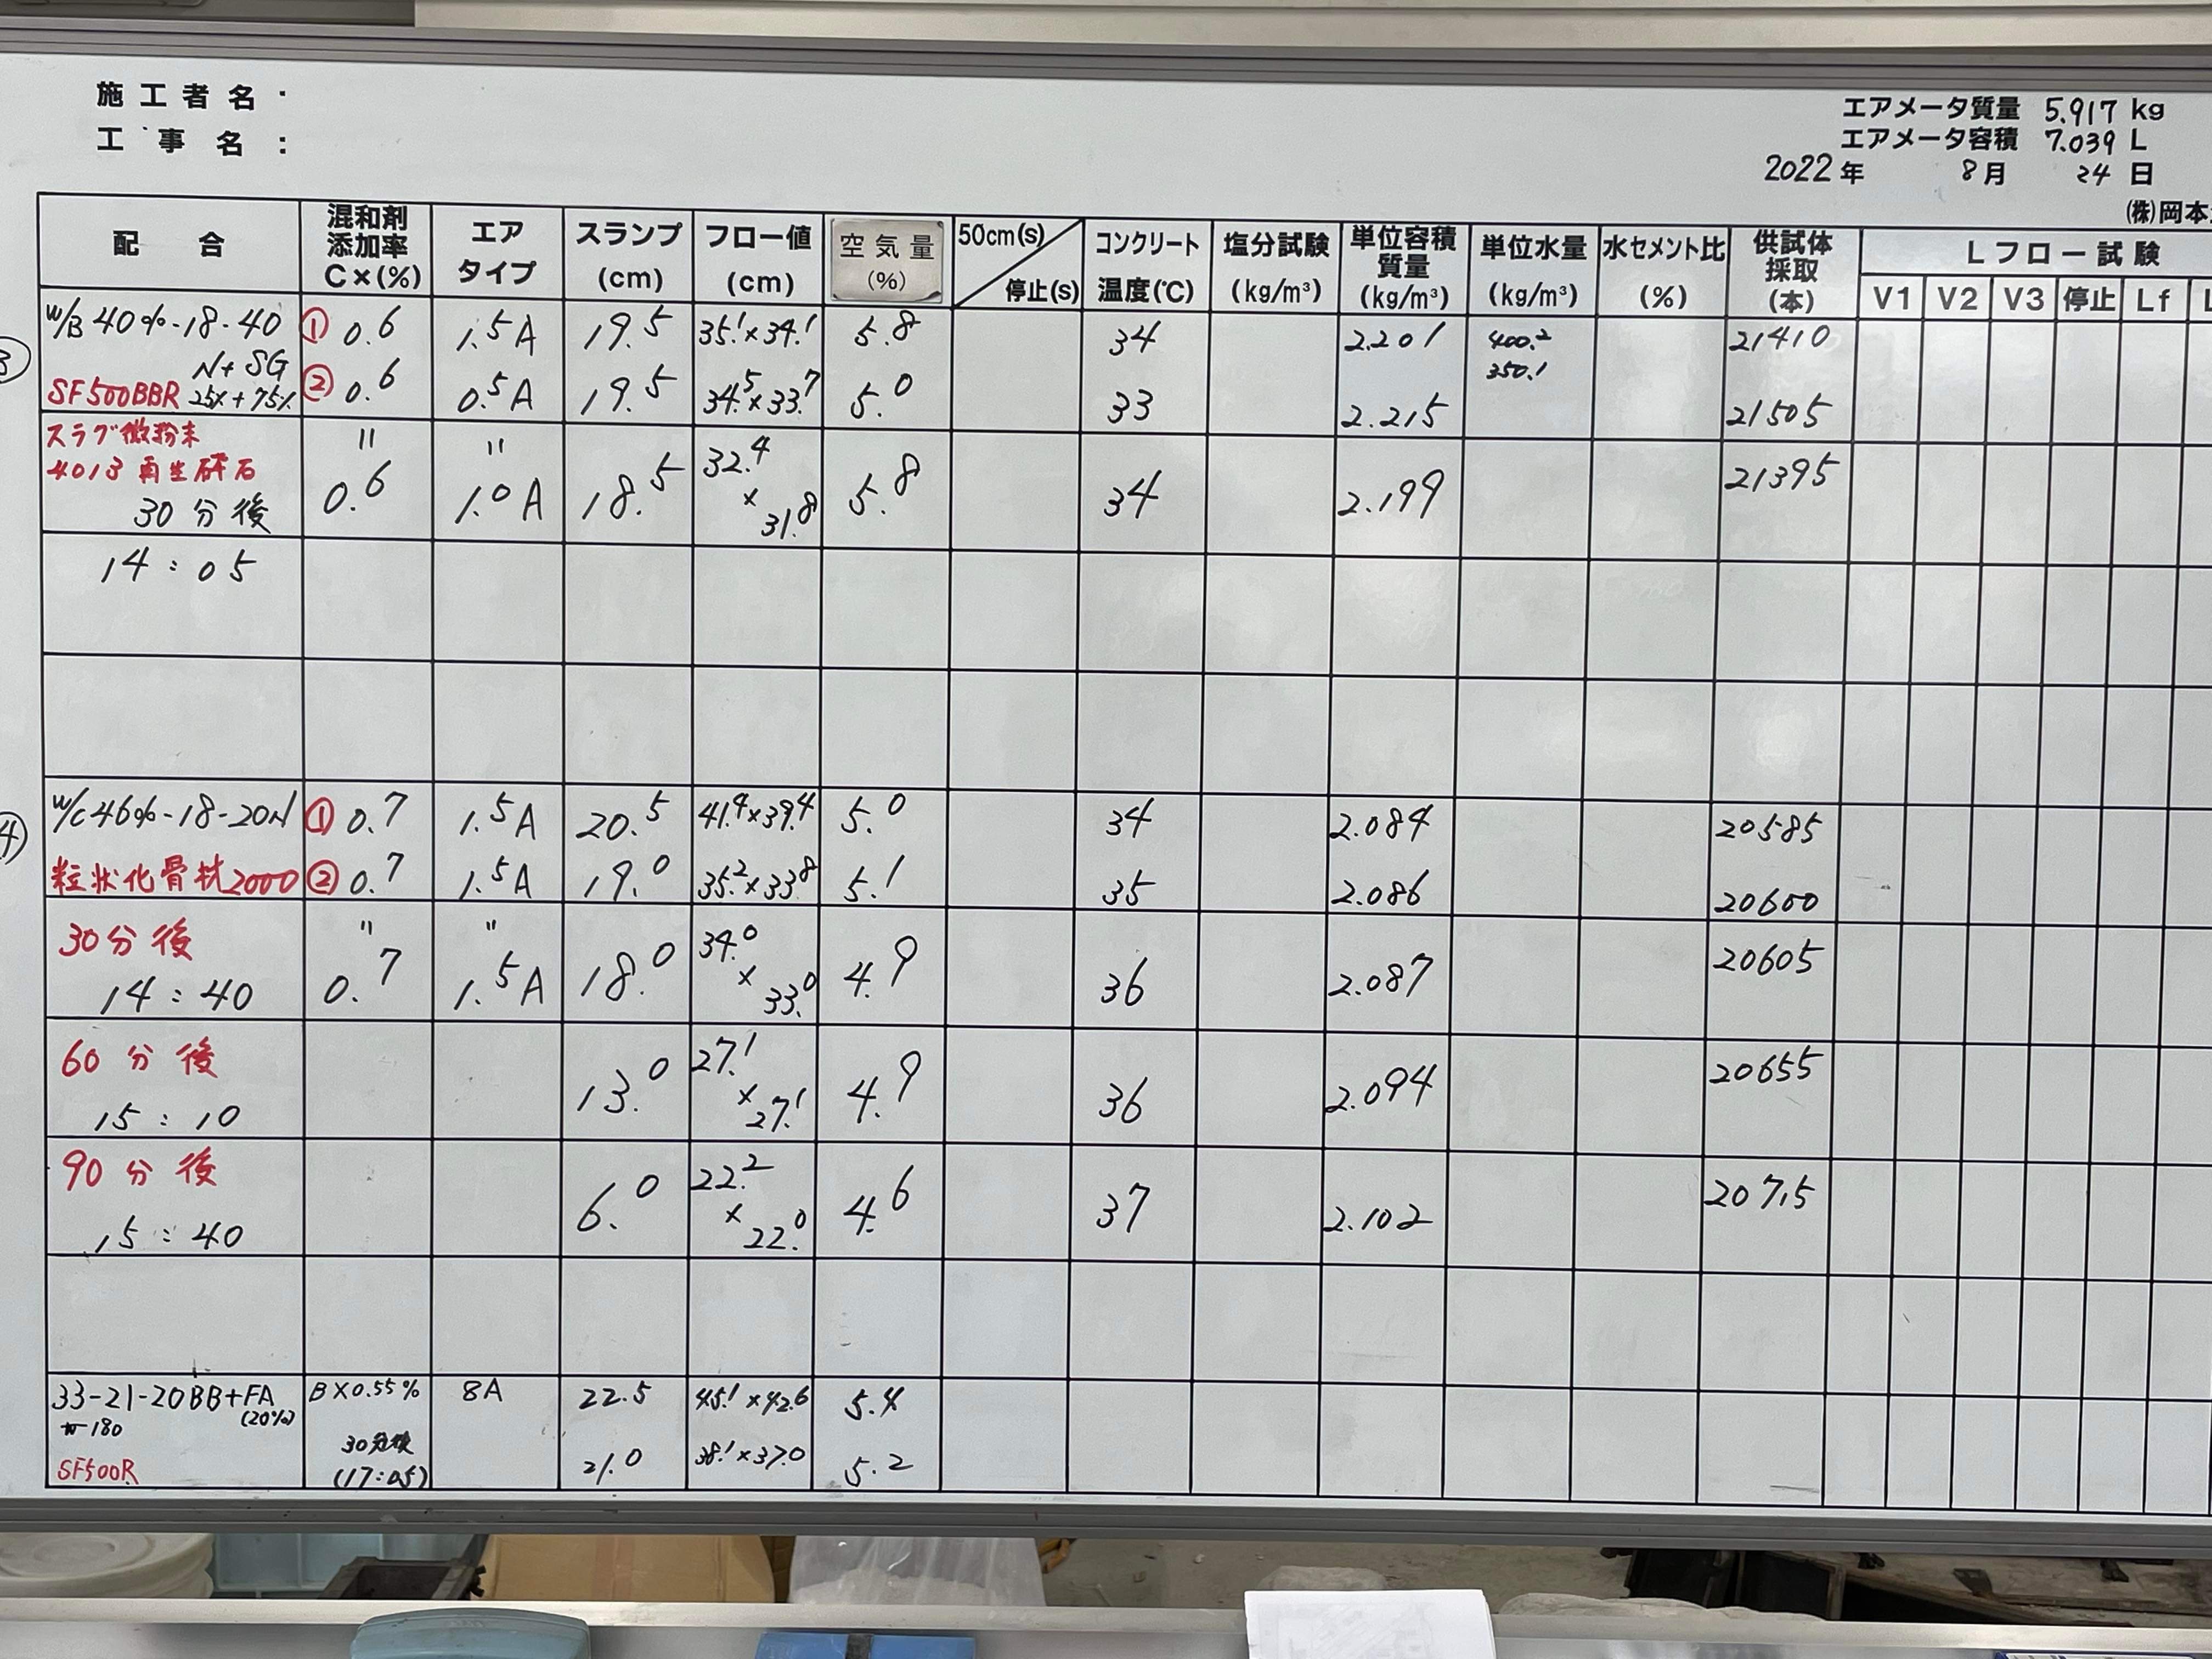 施工者名:
工事名:
エアメータ質量 5.917 kg
エアメータ容積 7.039 L
2022年 8月 24日
(株)岡本
配合 混和剤添加率C×(%) エアタイプ スランプ(cm) フロー値(cm) 空気量(%) 50cm(s) 停止(s) コンクリート温度(℃) 塩分試験(kg/m³) 単位容積質量(kg/m³) 単位水量(kg/m³) 水セメント比(%) 供試体採取(本) Lフロー試験
V1 V2 V3 停止 Lf
W/B 40%-18-40 ① 0.6 1.5A 19.5 35.1×34.1 5.8 34 2.201 400.2 21410
N+SG 350.1
SF500BBR 25%+75% ② 0.6 0.5A 19.5 34.5×33.7 5.0 33 2.215 21505
スラグ微粉末 〃 〃
4013再生砕石
30分後 0.6 1.0A 18.5 32.4×31.8 5.8 34 2.199 21395
14:05
④
W/C46%-18-20N ① 0.7 1.5A 20.5 41.4×39.4 5.0 34 2.084 20585
粒状化骨材2000 ② 0.7 1.5A 19.0 35.2×33.8 5.1 35 2.086 20600
30分後 〃 〃
14:40 0.7 1.5A 18.0 34.0×33.0 4.9 36 2.087 20605
60分後
15:10 13.0 27.1×27.1 4.9 36 2.094 20655
90分後
15:40 6.0 22.2×22.0 4.6 37 2.102 20715
33-21-20BB+FA B×0.55% 8A 22.5 45.1×42.6 5.4
(20%)
W-180
30分後
SF500R (17:05) 21.0 38.1×37.0 5.2